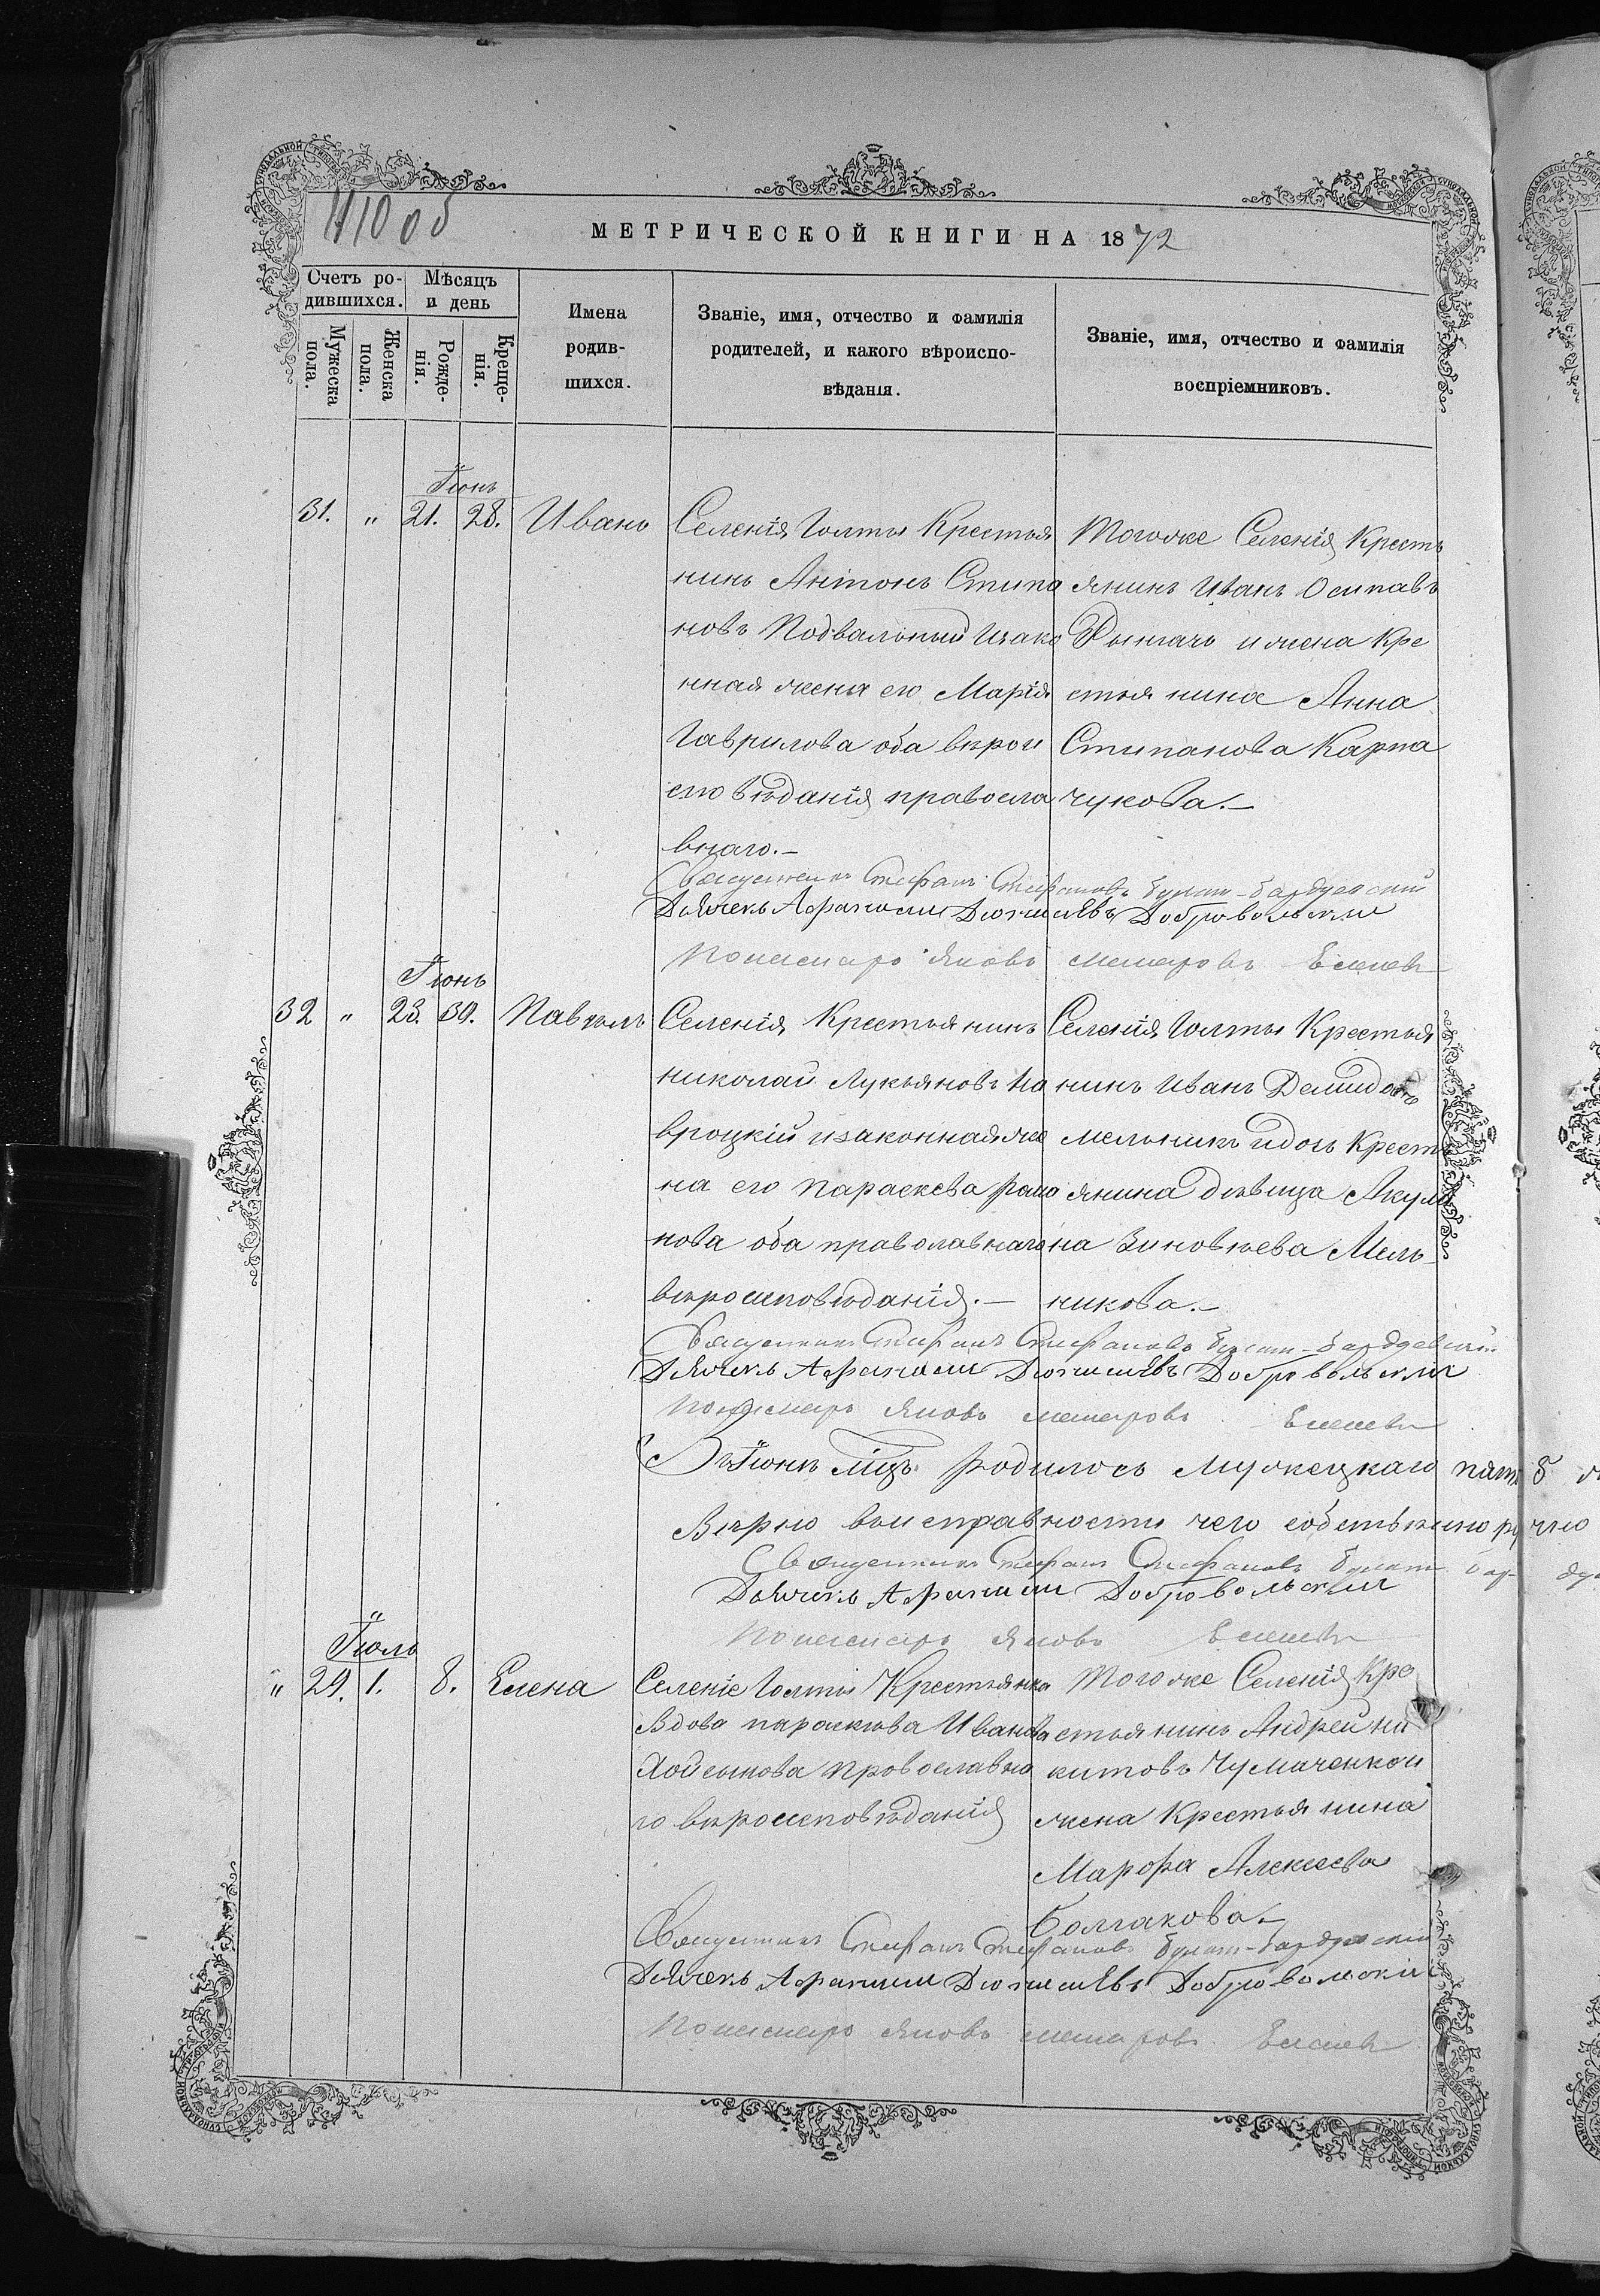 110 об
МЕТРИЧЕСКОЙ КНИГИ НА 1872
Счетъ ро-
дившихся.
Мѣсяцъ
и день
Мужеска
пола.
Женска
пола.
Рожде-
нія.
Креще-
нія.
Имена
родив-
шихся.
Званіе, имя, отчество и фамилія
родителей, и какого вѣроиспо-
вѣданія.
Званіе, имя, отчество и фамилія
воспріемниковъ.
Іюнь
31. " 21. 28. Иванъ
Селенія Голты Крестья
нинъ Антонъ Стипа
новъ Подвальный изако
нная жена его Марія
Гаврилова оба вѣрои
сповѣданія правосла
внаго.—
Тогоже Селенія Кресть
янинъ Иванъ Осипавъ
и жена Кре
стьянина Анна
Стипанова Карпа
чукова.—
Священникъ Стефанъ Стефановъ
Дьячекъ Афанасий Дионисиевъ Добровольский
Пономаръ Яковъ
Іюнь
32 " 23. 30. Павелъ
Селенія Крестьянинъ
николай Лукьяновъ На
вроцкій изаконная же
на его Параскева Рома
нова оба праволавнаго
вѣроисповѣданія.—
Селенія Голты Крестья
нинъ Иванъ Демидовъ
мельникъ идочь Кресть
янина дѣвица Акули
на Зиновъева Мель-
никова.—
Священникъ Стефанъ Стефановъ
Дьячекъ Афанасий Дионисиевъ Добровольский
Пономаръ Яковъ
Въ Іюнѣ мцѣ родилось Мужецкаго
Вѣрно вы исправности чего
Священникъ Стефанъ Стефановъ
Дьячекъ Афанасий Добровольский
Пономаръ Яковъ
Іюль
" 29. 1. 8. Елена
Селеніе Голты Крестьянка
Вдова параскева Иванова
провославна
го вѣроисповѣданія
Тогоже Селенія Кре
стьянинъ Андрей Ни
китовъ Чумаченкои
жена Крестьянина
Марфа Алексеева
Болгакова.—
Священникъ Стефанъ Стефановъ
Дьячекъ Афанасий Дионисиевъ Добровольский
Пономаръ Яковъ